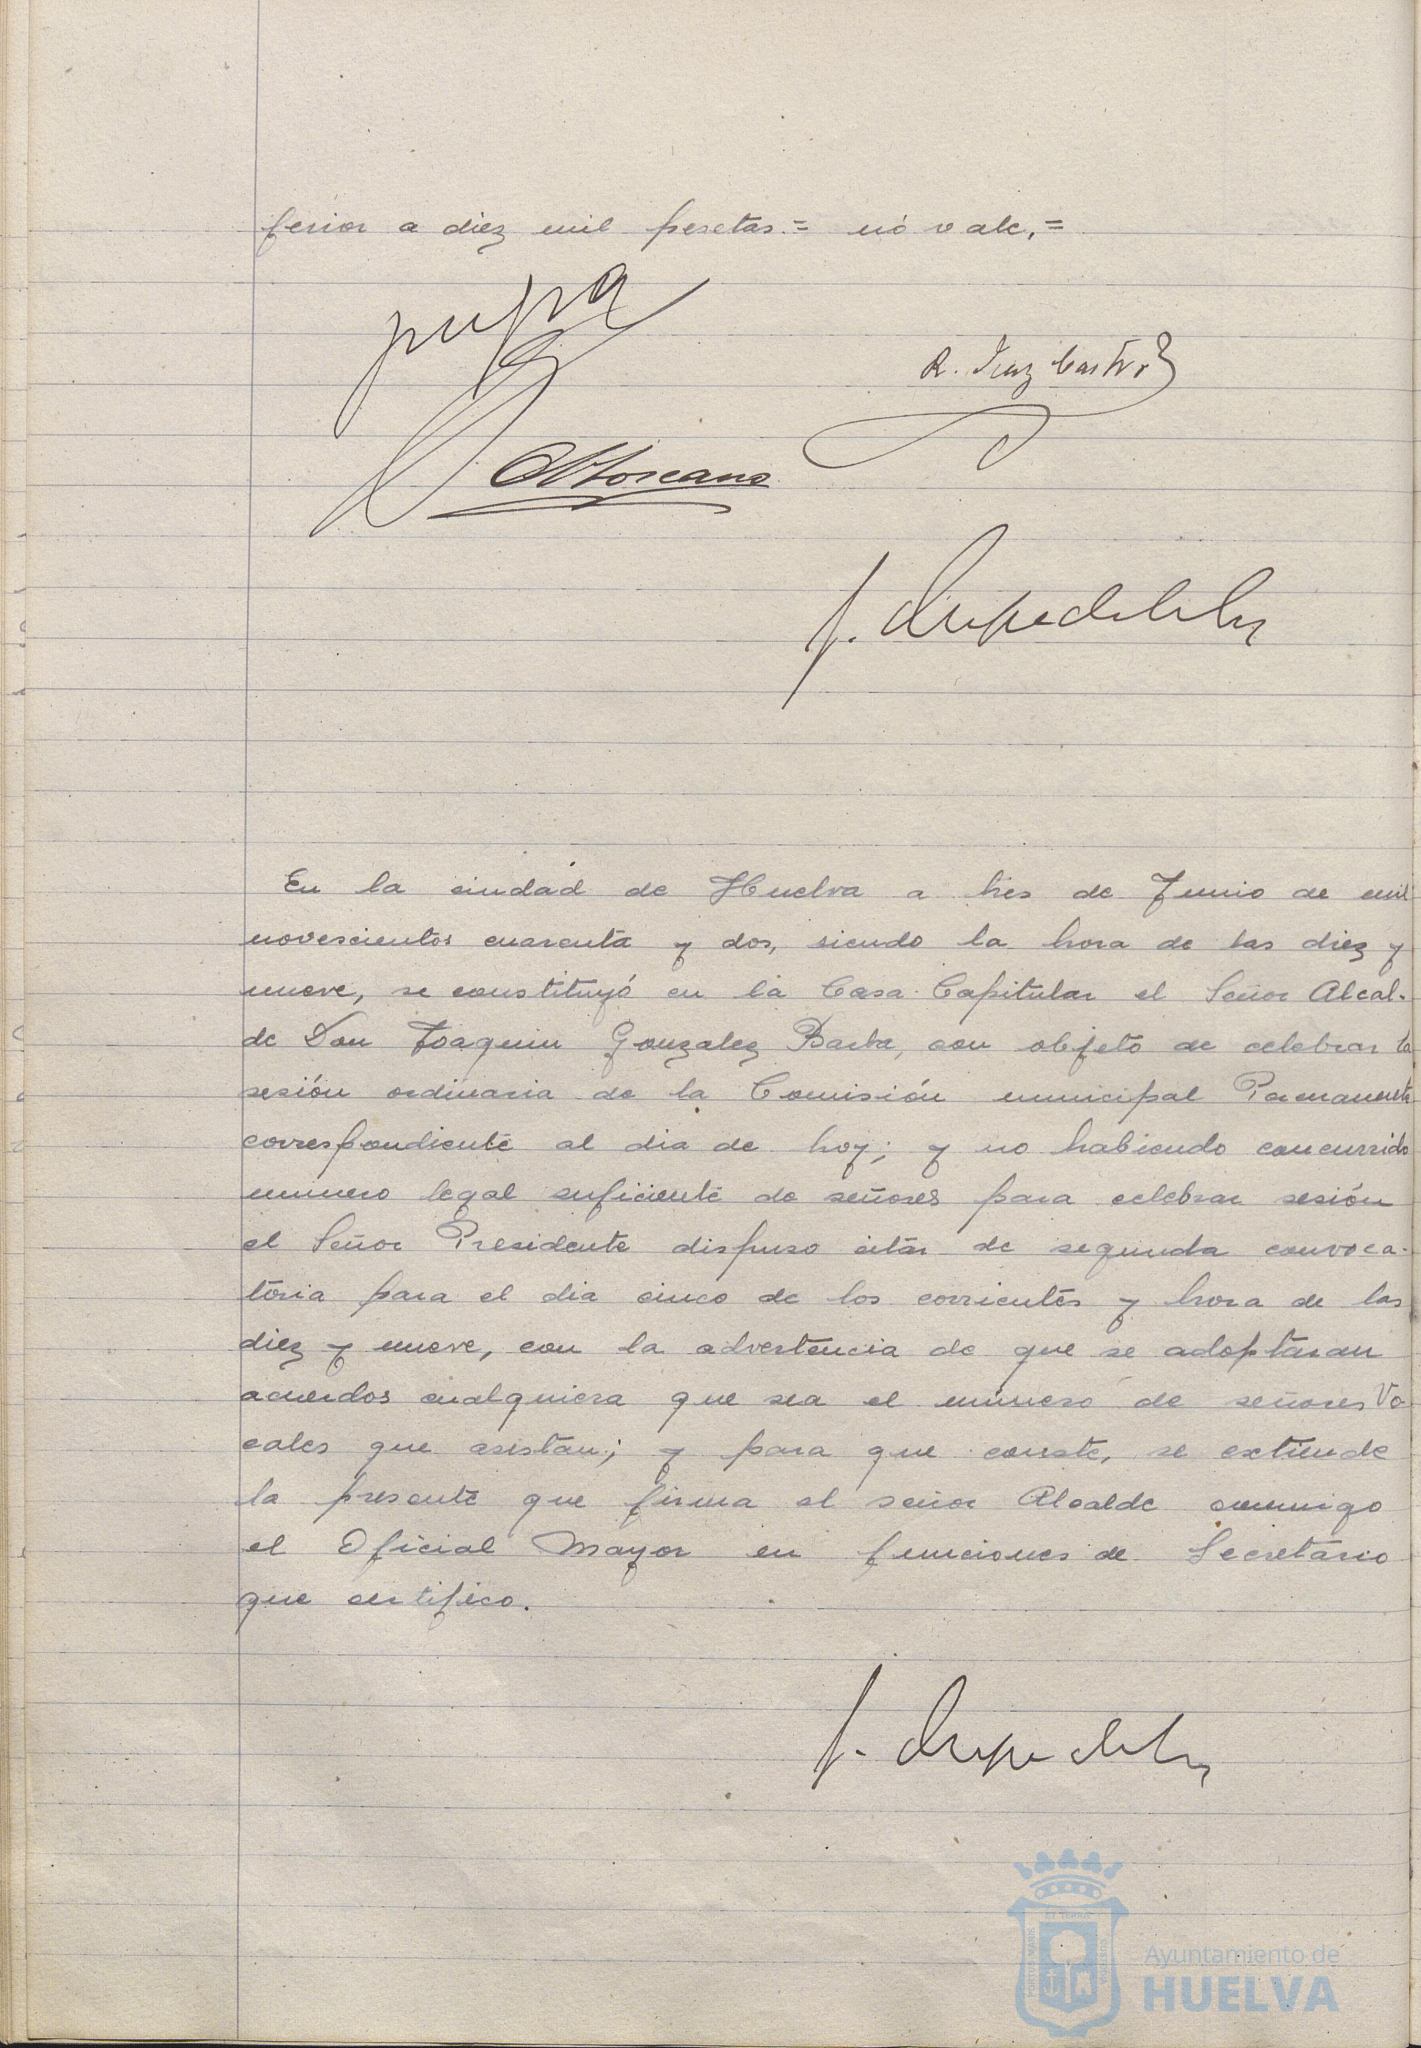 ferior a diez mil pesetas.= nó vale,=
R. Diaz Castro
En la ciudad de Huelva a tres de Junio de mil
novescientos cuarenta y dos, siendo la hora de las diez y
nueve, se constituyó en la Casa Capitular el Señor Alcal-
de Don Joaquin Gonzalez Barba, con objeto de celebrar la
sesión ordinaria de la Comisión municipal Permanente
correspondiente al dia de hoy; y no habiendo concurrido
número legal suficiente de señores para celebrar sesión
el Señor Presidente dispuso citar de segunda convoca-
toria para el dia cinco de los corrientes y hora de las
diez y nueve, con la advertencia de que se adoptaran
acuerdos cualquiera que sea el número de señores Vo
cales que asistan; y para que conste, se extiende
la presente que firma el señor Alcalde conmigo
el Oficial Mayor en funciones de Secretario
que certifico.
Ayuntamiento de
HUELVA